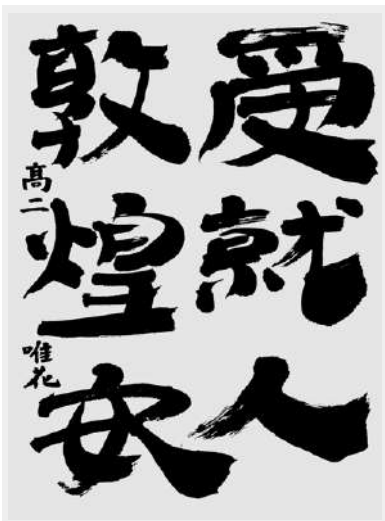 受就人
敦煌安
高二 唯花